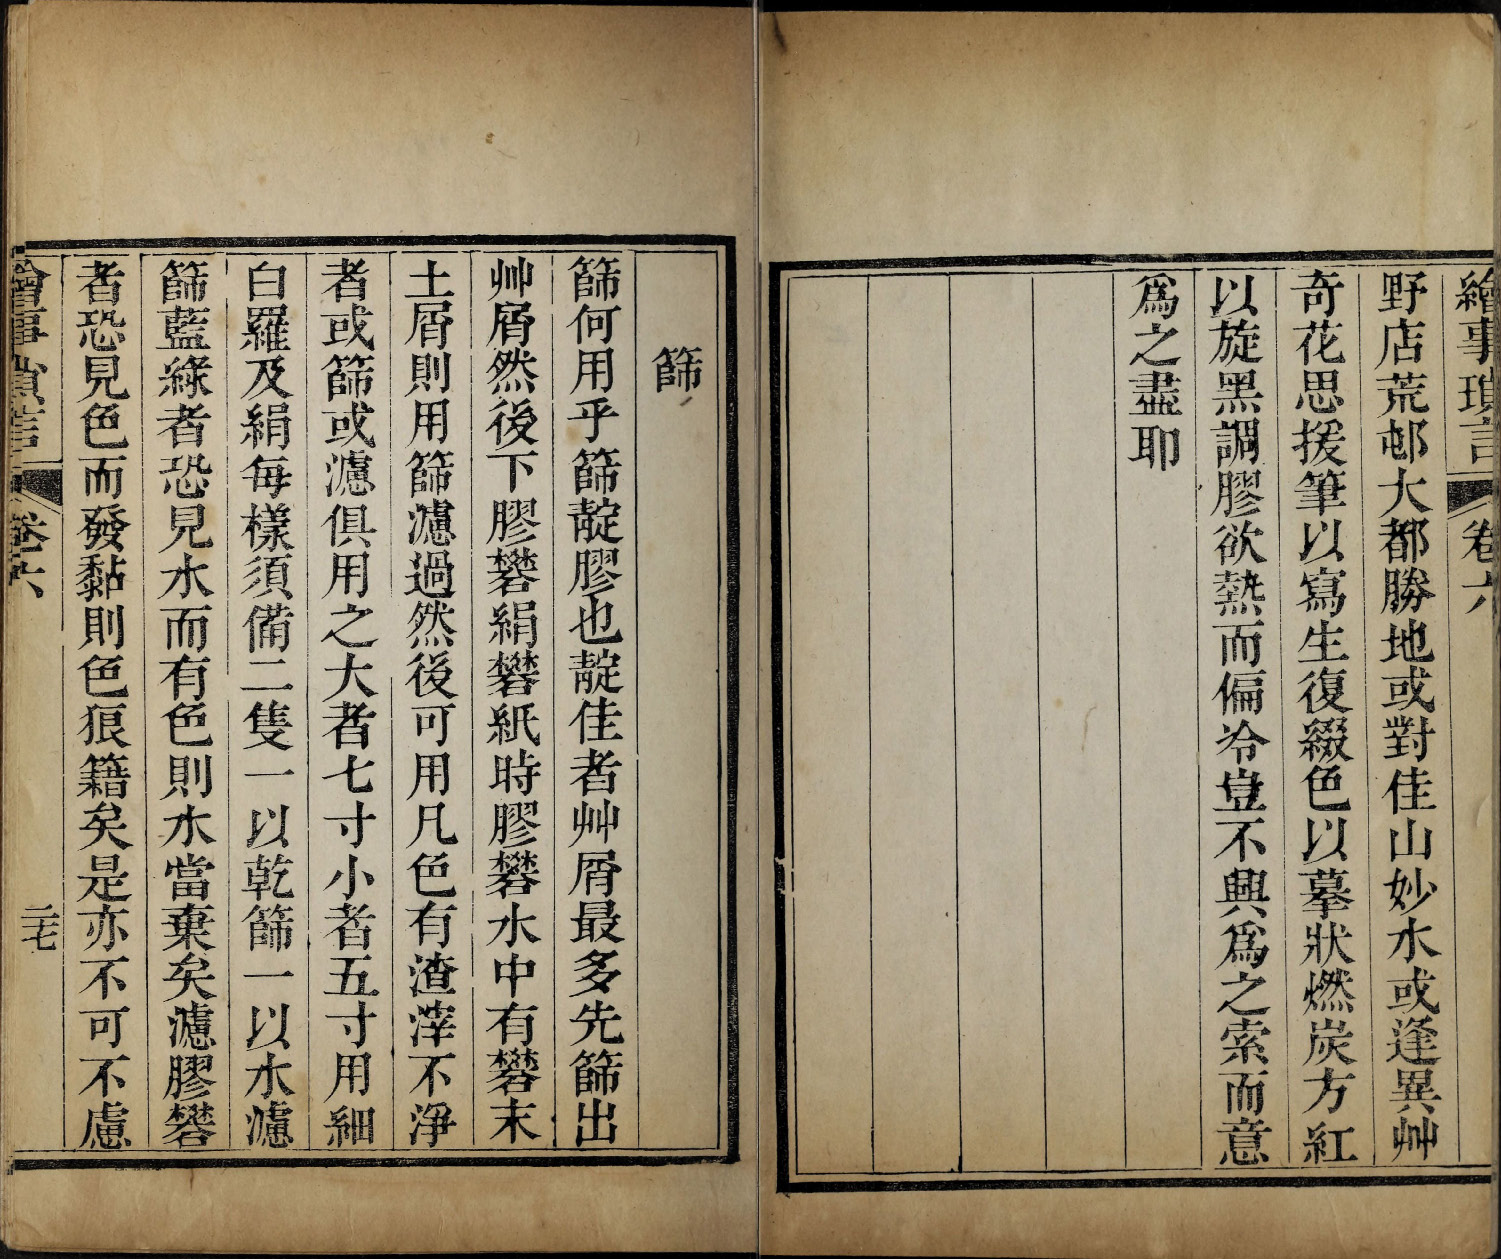 繪事瑣言 卷六
野店荒邨大都勝地或對佳山妙水或逢異艸
奇花思援筆以寫生復綴色以摹狀燃炭方紅
以旋黑調膠欲熱而偏冷豈不興爲之索而意
爲之盡耶
篩
篩何用乎篩靛膠也靛佳者艸屑最多先篩出
艸屑然後下膠礬絹礬紙時膠礬水中有礬末
土屑則用篩濾過然後可用凡色有渣滓不淨
者或篩或濾俱用之大者七寸小者五寸用細
白羅及絹每樣須備二隻一以乾篩一以水濾
篩藍綠者恐見水而有色則水當棄矣濾膠礬
者恐見色而發黏則色狼籍矣是亦不可不慮
繪事瑣言 卷六 二七